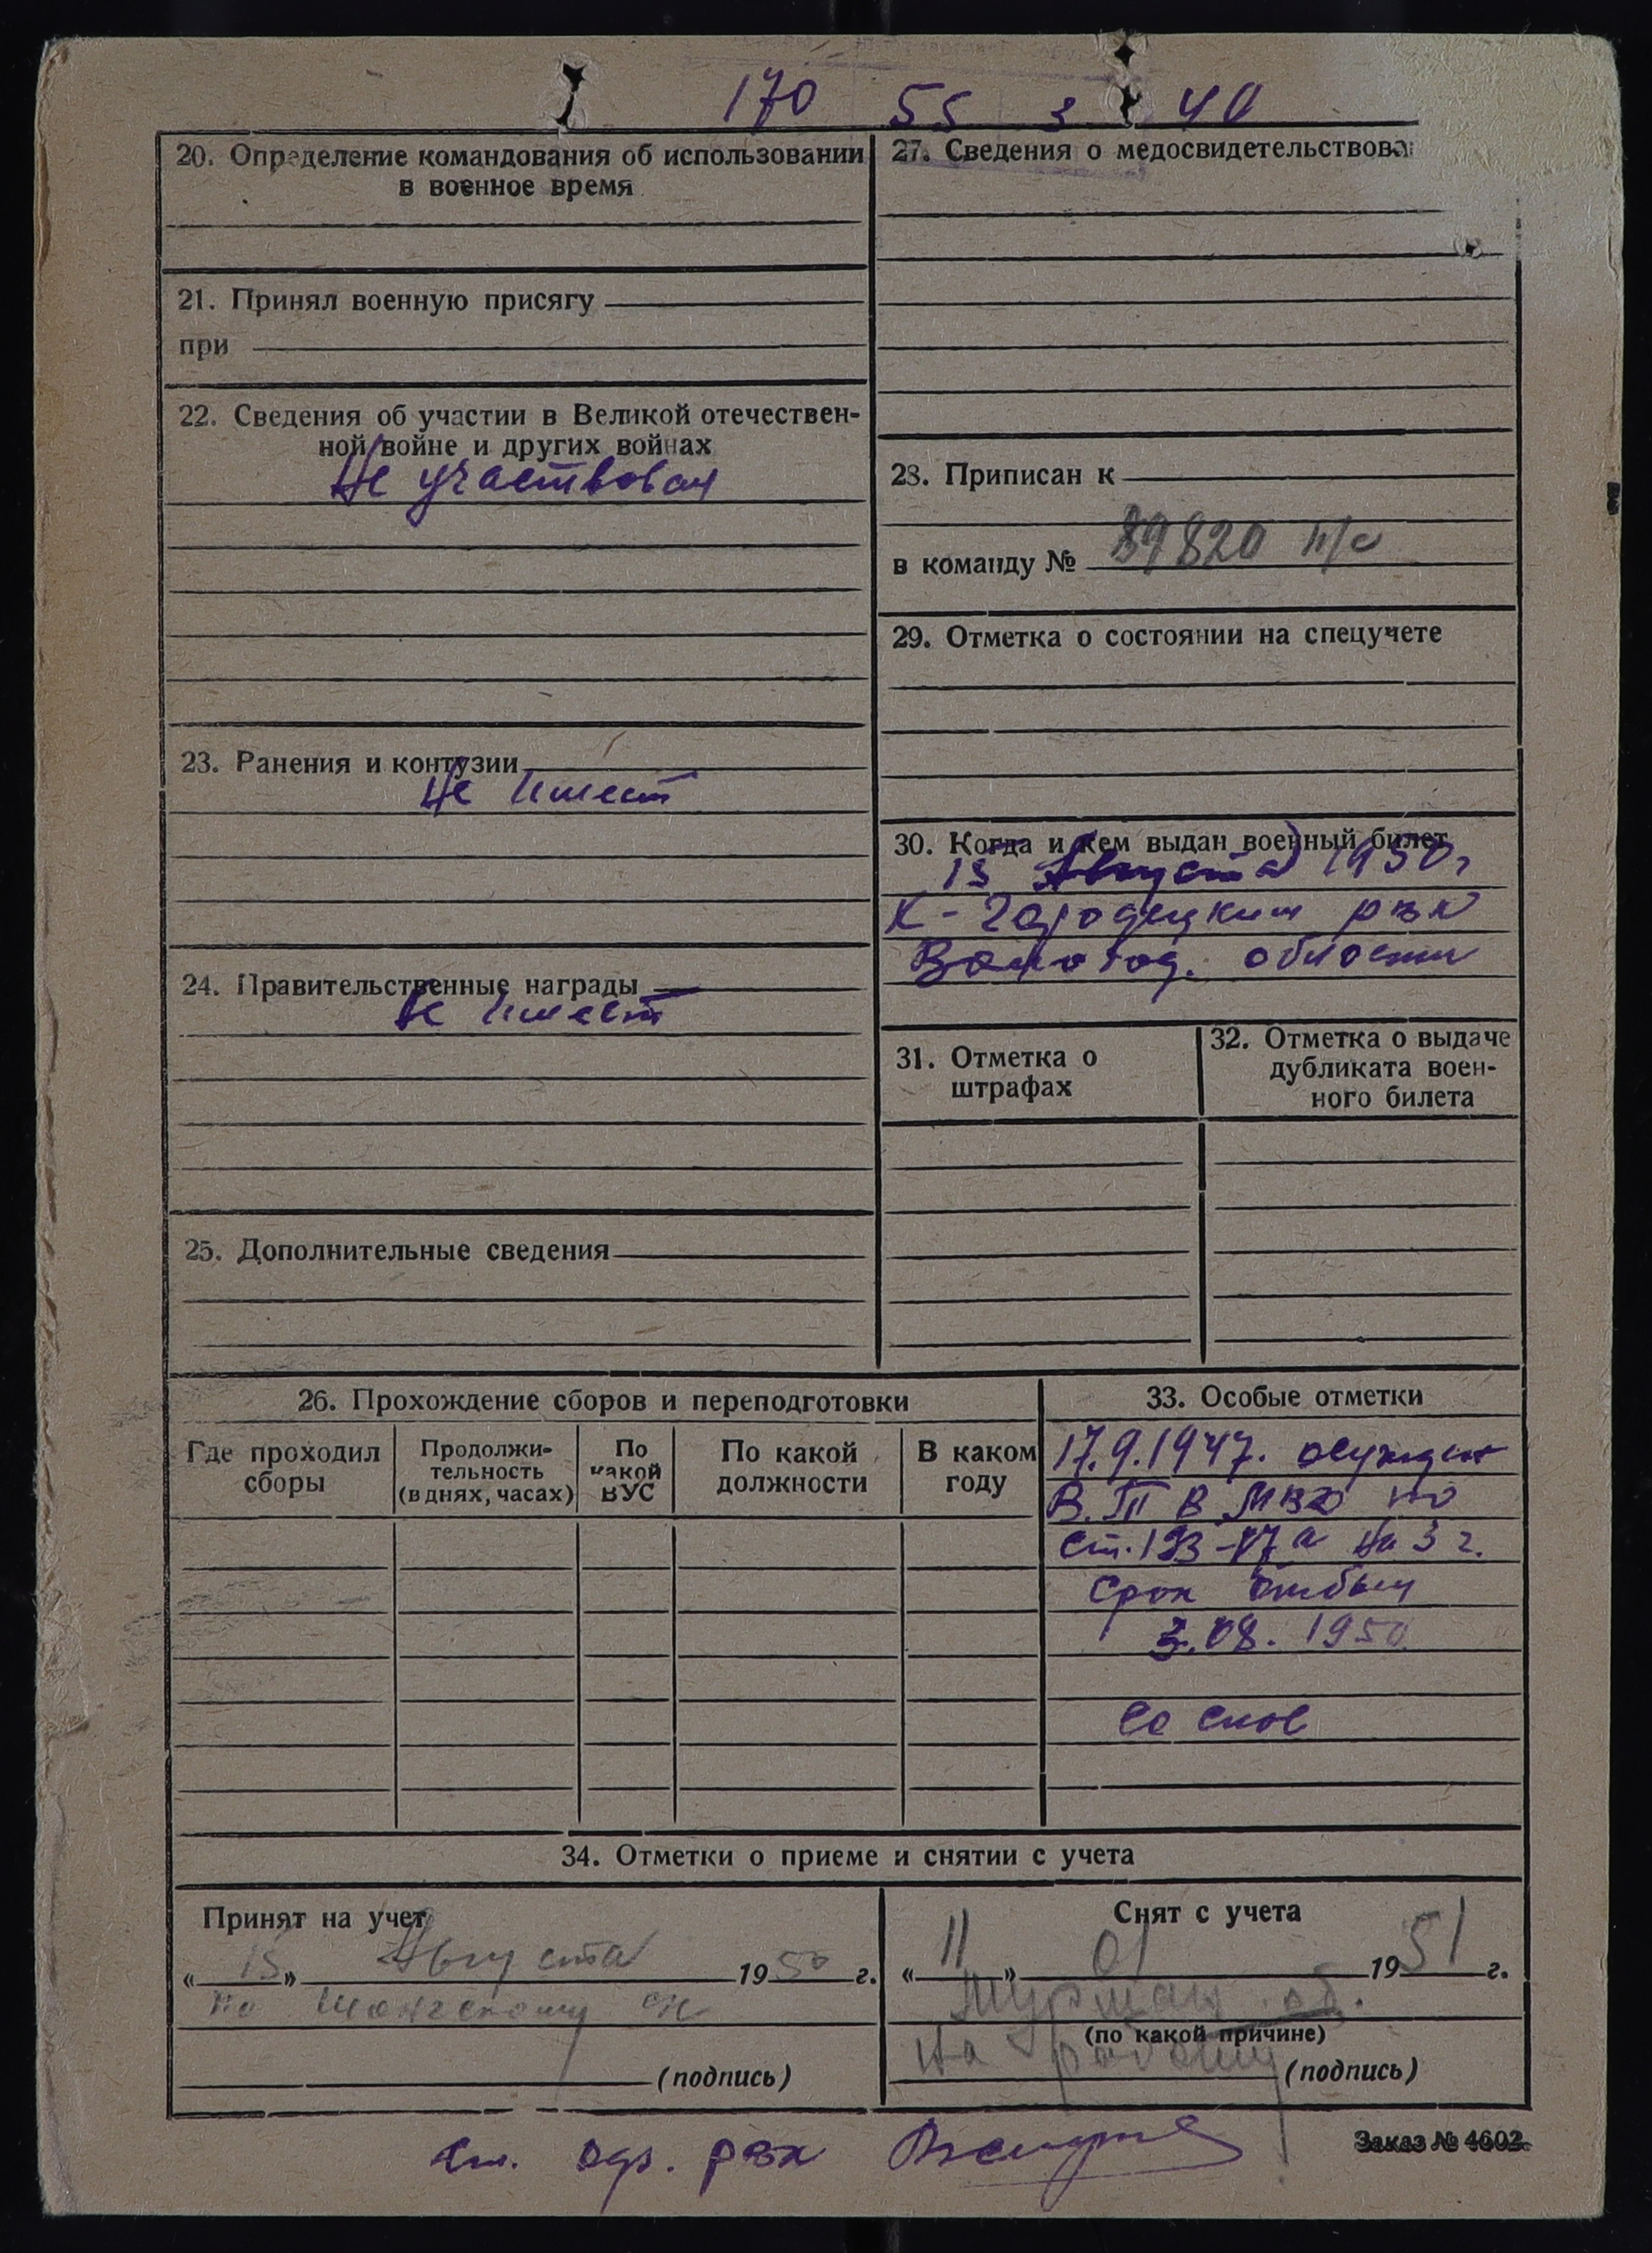 170 55 3 40
20. Определение командования об использовании
в военное время
21. Принял военную присягу
при
22. Сведения об участии в Великой отечествен-
ной войне и других войнах
Не участвовал
23. Ранения и контузии
Не имеет
24. Правительственные награды
Не имеет
25. Дополнительные сведения
27. Сведения о медосвидетельствова
28. Приписан к
в команду № 89820 н/с
29. Отметка о состоянии на спецучете
30. Когда и кем выдан военный билет
15 Августа 1950 г
К-Городецким рвк
Вологод. области
31. Отметка о
штрафах
32. Отметка о выдаче
дубликата воен-
ного билета
26. Прохождение сборов и переподготовки
Где проходил
сборы
Продолжи-
тельность
(в днях, часах)
По
какой
ВУС
По какой
должности
В каком
году
33. Особые отметки
17.9.1947. осужден
В.Т В МВО по
ст. 193-17а на 3 г.
Срок отбыл
3.08.1950
34. Отметки о приеме и снятии с учета
Принят на учет
«15» Августа 1950 г.
по
(подпись)
Снят с учета
«11» 01 1951 г.
Мурман. об.
(по какой причине)
на работу
(подпись)
рвк
Заказ № 4602.